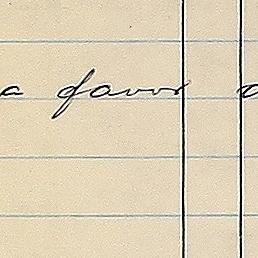 a favor